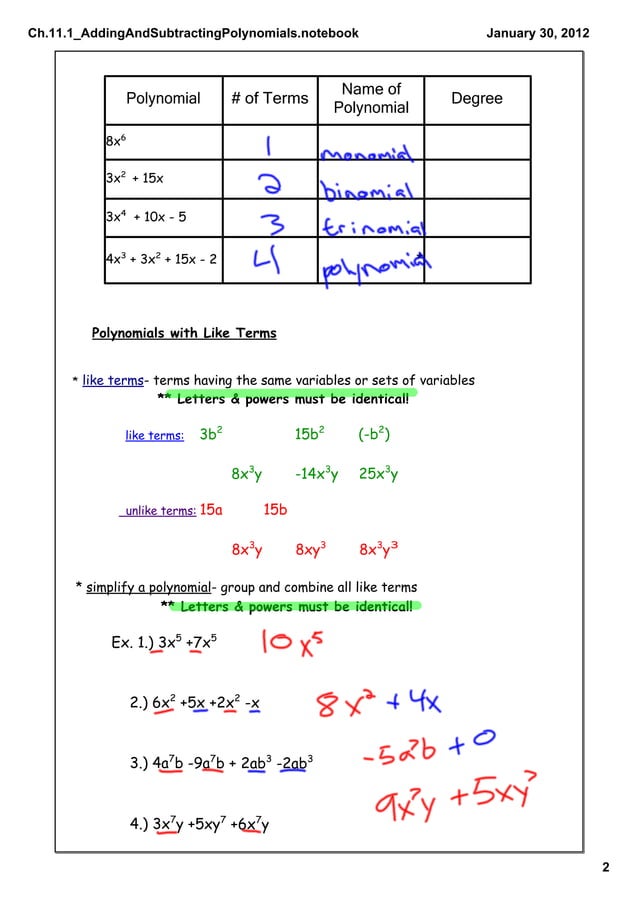 Ch.11.1_AddingAndSubtractingPolynomials.notebook January 30, 2012
Polynomial # of Terms Name of Polynomial Degree
8x⁶ 1 monomial
3x² + 15x 2 binomial
3x⁴ + 10x - 5 3 trinomial
4x³ + 3x² + 15x - 2 4 polynomial
Polynomials with Like Terms
* like terms- terms having the same variables or sets of variables
** Letters & powers must be identical!
like terms: 3b² 15b² (-b²)
8x³y -14x³y 25x³y
unlike terms: 15a 15b
8x³y 8xy³ 8x³y³
* simplify a polynomial- group and combine all like terms
** Letters & powers must be identical!
Ex. 1.) 3x⁵ +7x⁵ 10x⁵
2.) 6x² +5x +2x² -x 8x² + 4x
3.) 4a⁷b -9a⁷b + 2ab³ -2ab³ -5a⁷b + 0
4.) 3x⁷y +5xy⁷ +6x⁷y 9x⁷y + 5xy⁷
2